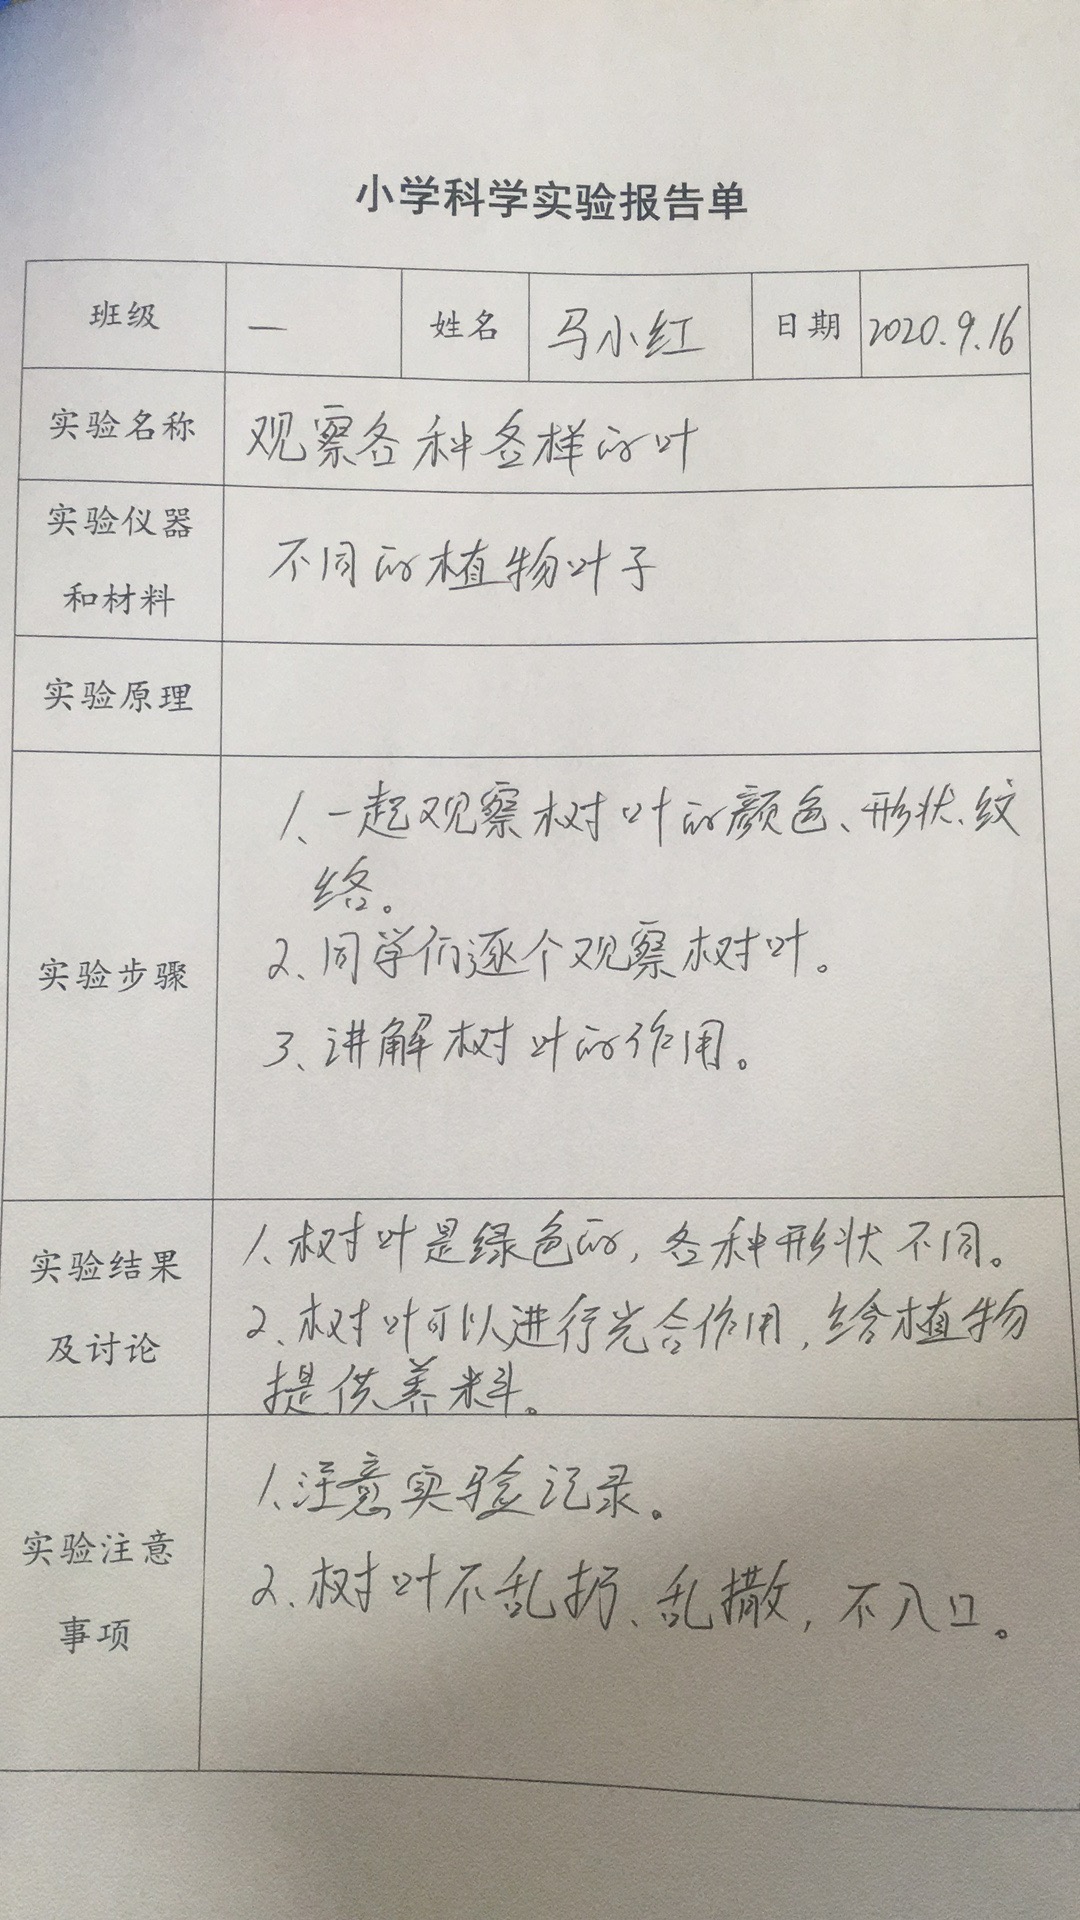 小学科学实验报告单
班级 一 姓名 马小红 日期 2020.9.16
实验名称 观察各种各样的叶
实验仪器
和材料
不同的植物叶子
实验原理
实验步骤
1、一起观察树叶的颜色、形状、纹
络。
2、同学们逐个观察树叶。
3、讲解树叶的作用。
实验结果
及讨论
1、树叶是绿色的，各种形状不同。
2、树叶可以进行光合作用，给植物
提供养料。
实验注意
事项
1、注意实验记录。
2、树叶不乱扔、乱撒，不入口。